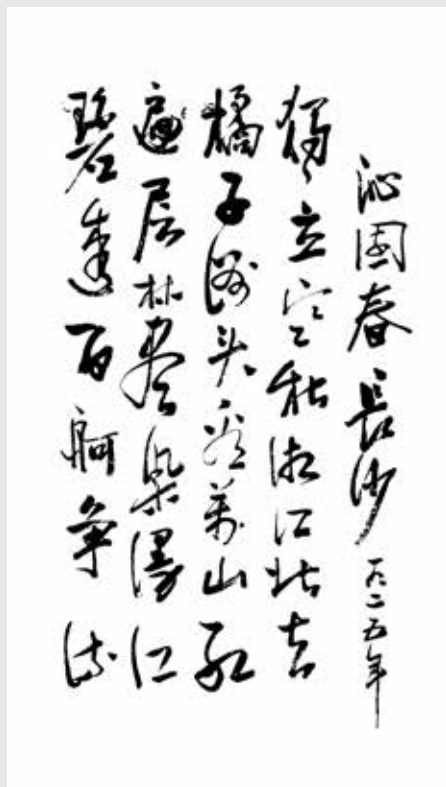 沁园春 長沙 一九二五年
獨立寒秋湘江北去
橘子洲头看萬山红
遍层林尽染漫江
碧透百舸争流